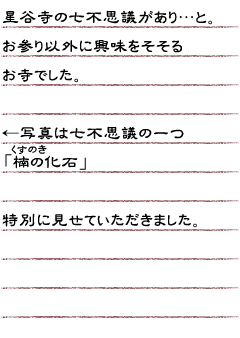 星谷寺の七不思議があり…と。
お参り以外に興味をそそる
お寺でした。
←写真は七不思議の一つ
くすのき
「楠の化石」
特別に見せていただきました。